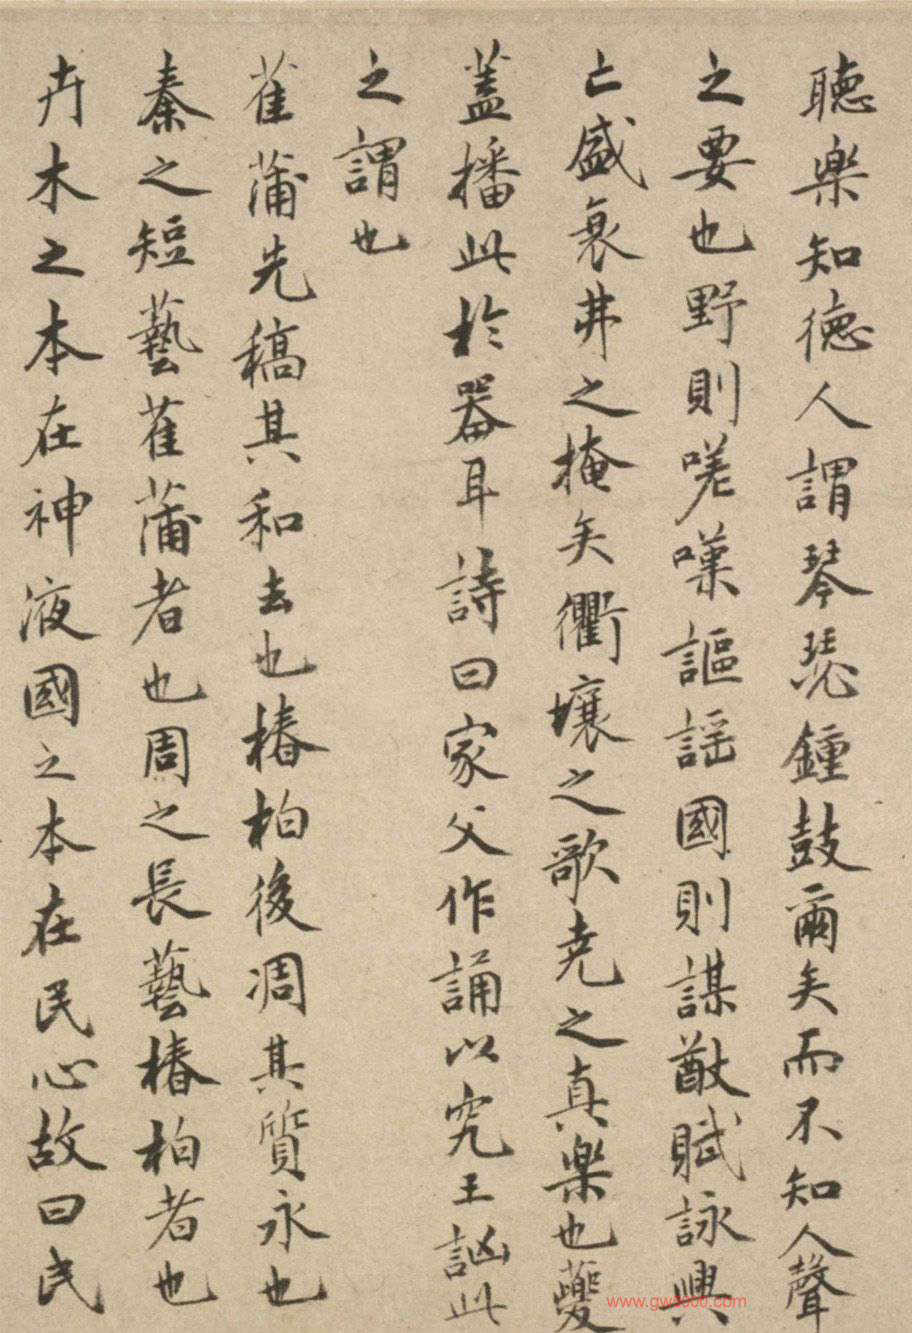 聽樂知德人謂琴瑟鍾鼓爾矣而不知人聲
之要也野則嗟嘆謳謡國則謀猷賦詠興
亡盛衰弗之掩矣衢壤之歌堯之真樂也夔
蓋播此於器耳詩曰家父作誦以究王訩此
之謂也
萑蒲先稿其和去也椿柏後凋其質永也
秦之短藝萑蒲者也周之長藝椿柏者也
卉木之本在神液國之本在民心故曰民
www.gw5000.com